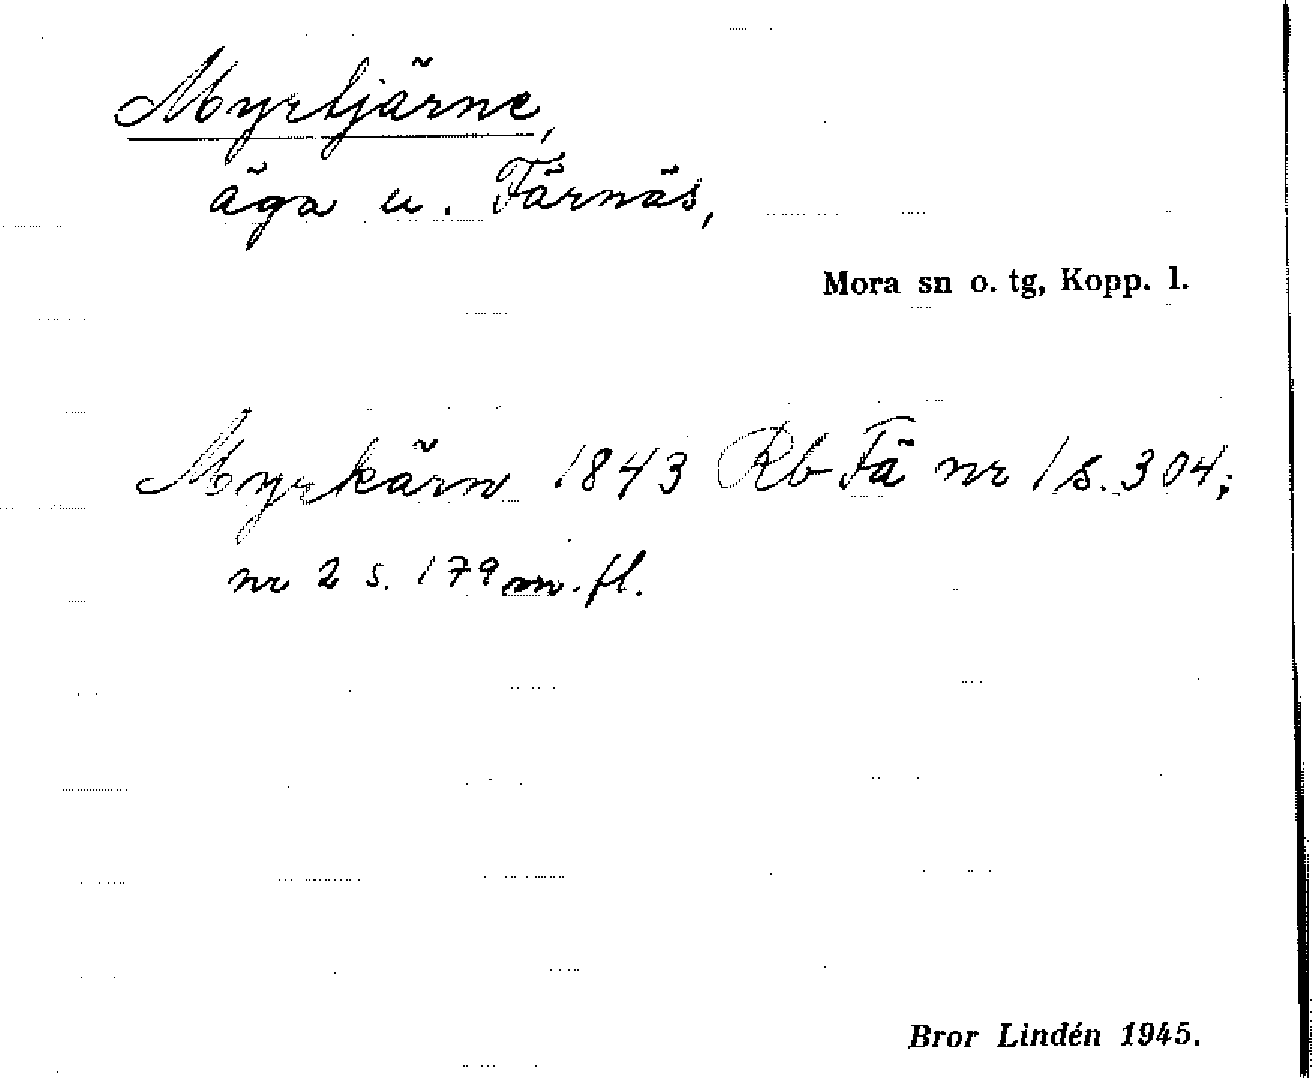 Myrtjärne,
äga u. Färnäs,
Mora sn o. tg, Kopp. l.
Myrkärn 1843 Rb Fä nr 1 s. 304;
nr 2 s. 179 m. fl.
Bror Lindén 1945.